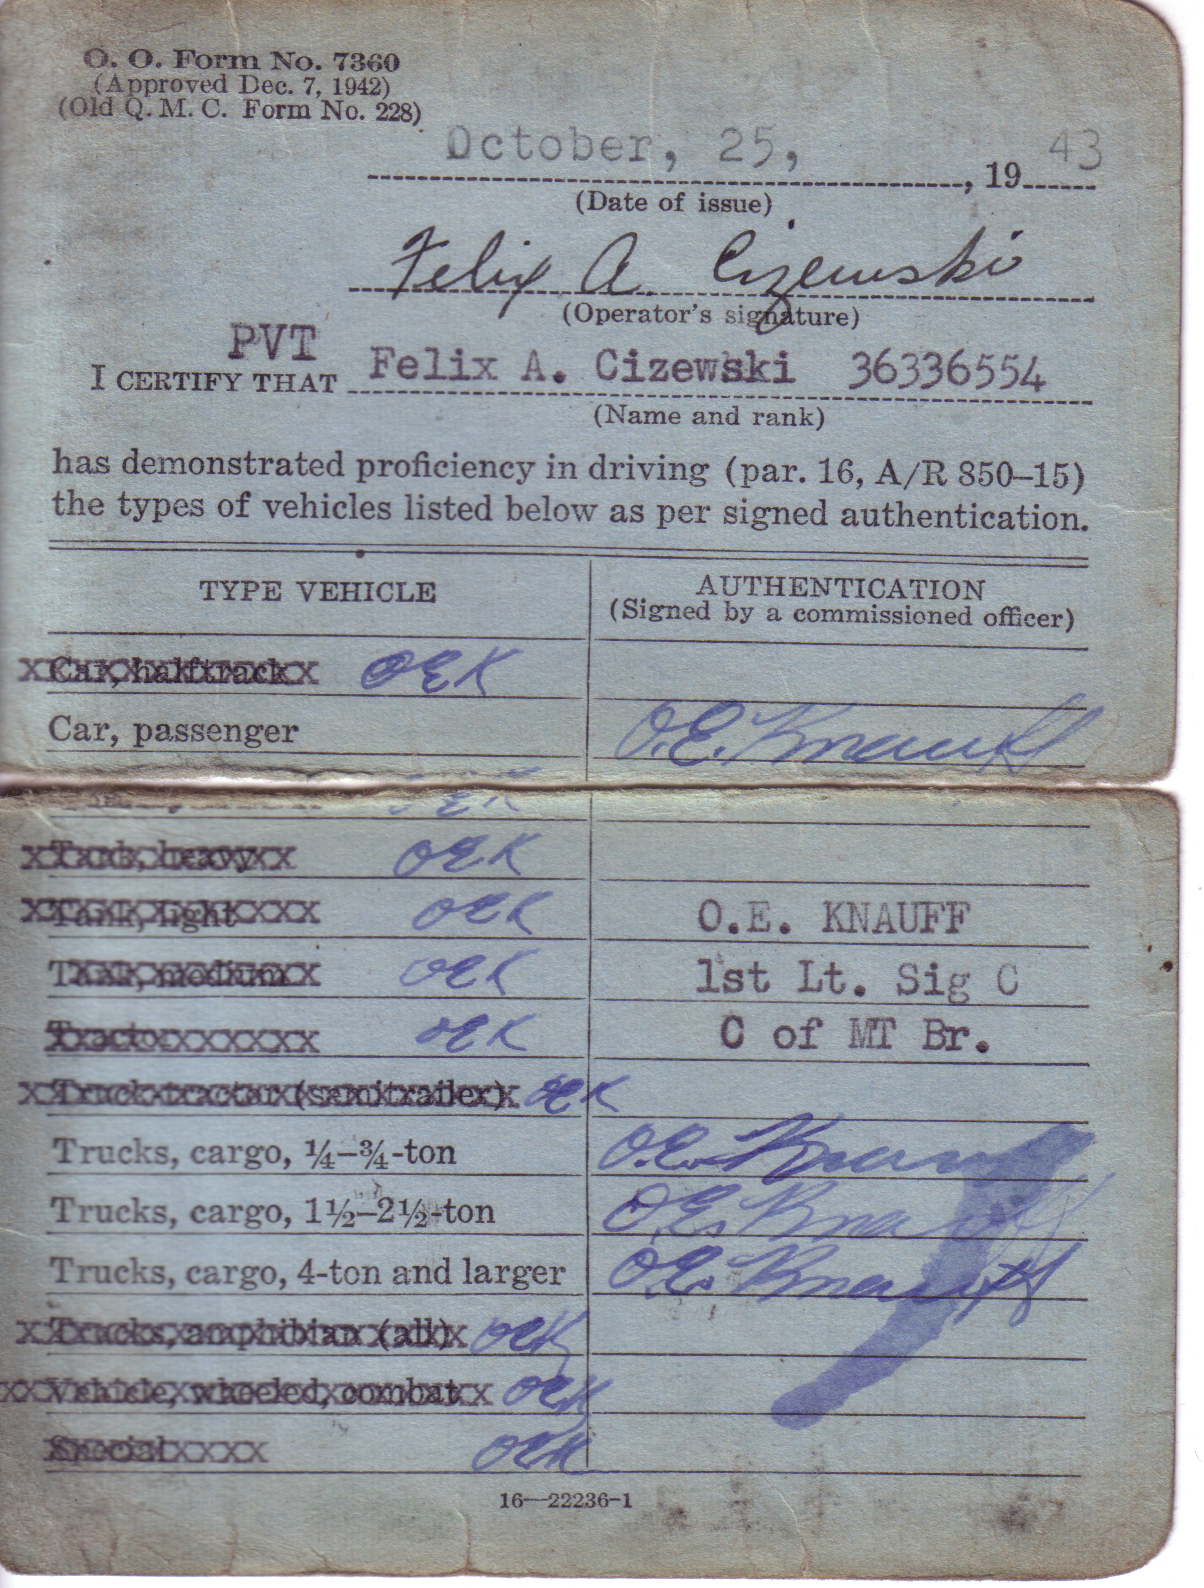 O. O. Form No. 7360
(Approved Dec. 7, 1942)
(Old Q. M. C. Form No. 228)
October, 25, , 19 43
(Date of issue)
Felix A. Cizewski
(Operator's signature)
PVT
I CERTIFY THAT Felix A. Cizewski 36336554
(Name and rank)
has demonstrated proficiency in driving (par. 16, A/R 850–15)
the types of vehicles listed below as per signed authentication.
TYPE VEHICLE AUTHENTICATION
(Signed by a commissioned officer)
Car, halftrack OEK
Car, passenger O.E. Knauff
Tank, heavy OEK
Tank, light OEK O.E. KNAUFF
Tank, medium OEK 1st Lt. Sig C
Tractor OEK C of MT Br.
Truck-tractor (semitrailer) OEK
Trucks, cargo, ¼–¾-ton O.E. Knauff
Trucks, cargo, 1½–2½-ton O.E. Knauff
Trucks, cargo, 4-ton and larger O.E. Knauff
Trucks, amphibian (all) OEK
Vehicle, wheeled, combat OEK
Special OEK
16—22236-1